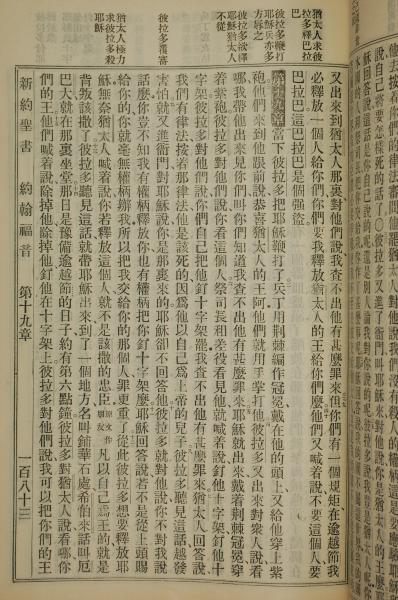 猶太人求彼
拉多釋巴拉
巴
彼拉多鞭打
耶穌兵亦多
方辱之
彼拉多欲釋
耶穌猶太人
不從
彼拉多復審
猶太人極力
求彼拉多殺
耶穌
又出來到猶太人那裏對他們說我查不出他有甚麽罪來但你們有一個規矩在逾越節我
必釋放一個人給你們你們要我釋放猶太人的王給你們麽他們又喊着說不要這個人要
巴拉巴這巴拉巴是個強盜
第十九章當下彼拉多把耶穌鞭打了兵丁用荊棘編作冠冕戴在他的頭上又給他穿上紫
袍他們來到他跟前說恭喜猶太人的王阿他們就用手掌打他彼拉多又出來對衆人說看
哪我帶他出來見你們叫你們知道我查不出他有甚麽罪來耶穌就出來戴着荊棘冠冕穿
着紫袍彼拉多對他們說你們看這個人祭司長和差役看見他就喊着說釘他十字架釘他十
字架彼拉多對他們說你們自己把他釘十字架罷我查不出他有甚麽罪來猶太人回答說
我們有律法按着那律法他是該死的因爲他以自己爲上帝的兒子彼拉多聽見這話越發
害怕就又進衙門對耶穌說你是那裏來的耶穌卻不回答他彼拉多就對他說你不對我說
話麽你豈不知我有權柄釋放你也有權柄把你釘十字架麽耶穌回答說若不是從上頭賜
給你的你就毫無權柄辦我所以把我交給你的那個人罪更重了從此彼拉多想要釋放耶
穌無奈猶太人喊着說你若釋放這個人就不是該撒的忠臣原文作朋友凡以自己爲王的就是
背叛該撒了彼拉多聽見這話就帶耶穌出來到了一個地方名叫鋪華石處希伯來話叫厄
巴大就在那裏坐堂那日是豫備逾越節的日子約有第六點鐘彼拉多對猶太人說看哪你
們的王他們喊着說除掉他除掉他釘他在十字架上彼拉多對他們說我可以把你們的王
新約聖書　約翰福音　第十九章　一百八十三